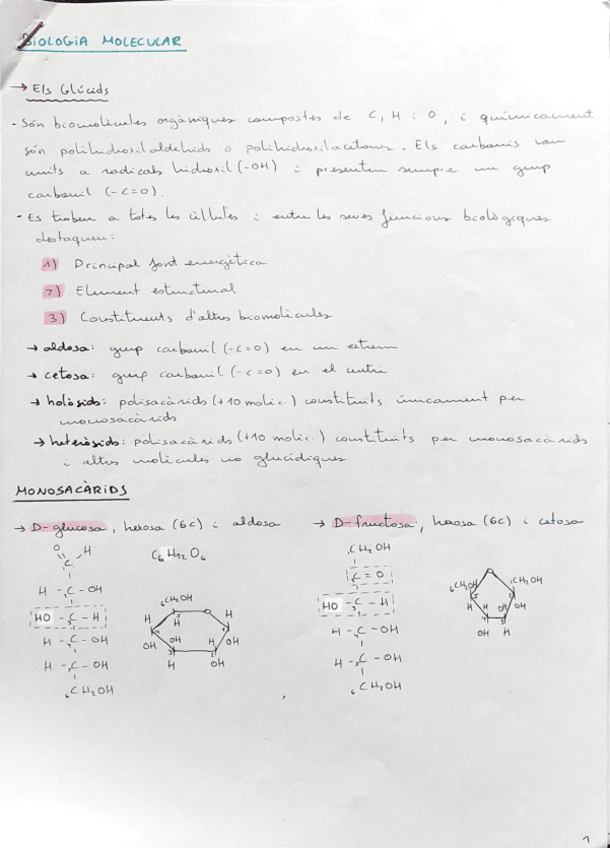 BIOLOGIA MOLECULAR
→ Els Glúcids
- Són biomolècules orgàniques compostes de C, H i O, i químicament
són polihidroxilaldehids o polihidroxilacetones. Els carbonis van
units a radicals hidroxil (-OH) i presenten sempre un grup
carbonil (-C=O).
- Es troben a totes les cèl·lules i entre les seves funcions biològiques
destaquen:
1) Principal font energètica
2) Element estructural
3) Constituents d'altres biomolècules
→ aldosa: grup carbonil (-C=O) en un extrem
→ cetosa: grup carbonil (-C=O) en el centre
→ holòsids: polisacàrids (+10 molèc.) constituïts únicament per
monosacàrids
→ heteròsids: polisacàrids (+10 molèc.) constituïts per monosacàrids
i altres molècules no glucídiques
MONOSACÀRIDS
→ D-glucosa, hexosa (6C) i aldosa
O H
1C
H - 2C - OH
HO - 3C - H
H - 4C - OH
H - 5C - OH
6CH2OH
C6H12O6
6CH2OH
H 5 O H
H
4 1
OH OH H OH
3 2
H OH
→ D-fructosa, hexosa (6C) i cetosa
1CH2OH
2C = O
HO - 3C - H
H - 4C - OH
H - 5C - OH
6CH2OH
O
6CH2OH 1CH2OH
5 2
H H OH OH
4 3
OH H
1